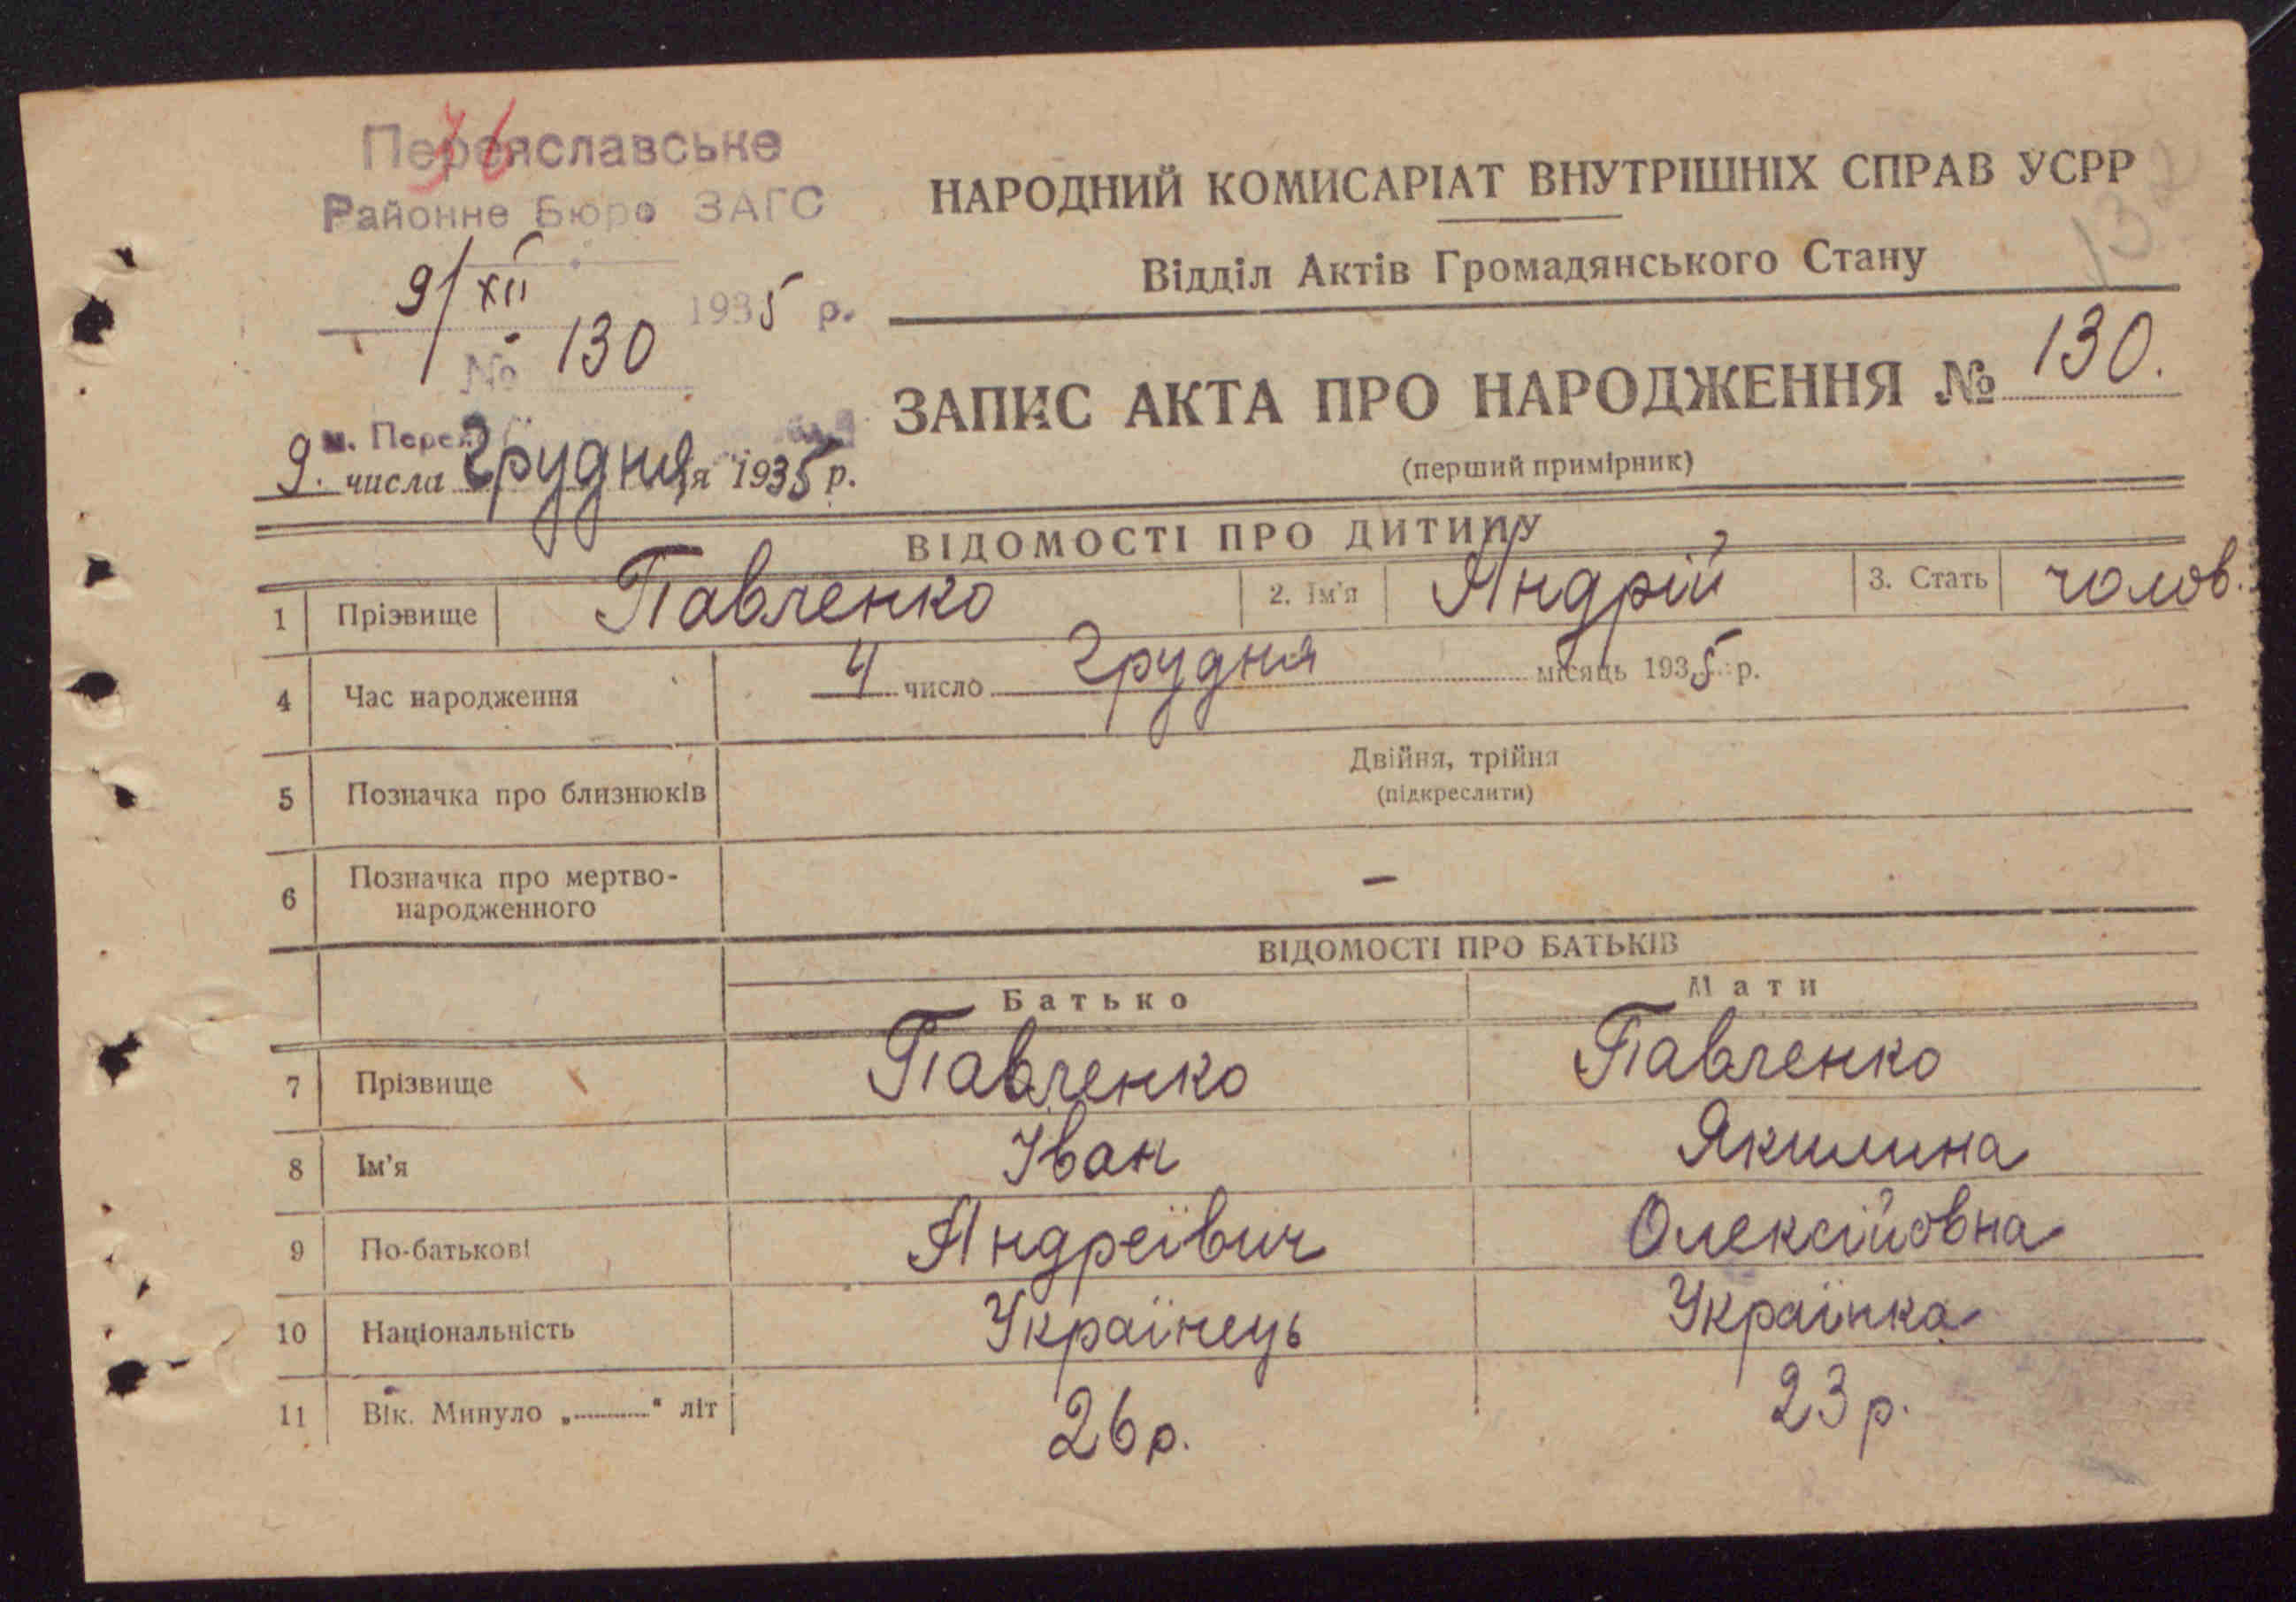 76
Переяславське
Районне Бюро ЗАГС
9/XII 1935 р.
№ 130
м. Перея
9. числа Грудня я 1935 р.
НАРОДНИЙ КОМИСАРІАТ ВНУТРІШНІХ СПРАВ УСРР
Відділ Актів Громадянського Стану
13
ЗАПИС АКТА ПРО НАРОДЖЕННЯ № 130.
(перший примірник)
ВІДОМОСТІ ПРО ДИТИНУ
1 Прізвище Павленко 2. Ім'я Андрій 3. Стать чолов.
4 Час народження 4 число Грудня місяць 1935 р.
5 Позначка про близнюків Двійня, трійня
(підкреслити)
6 Позначка про мертво-
народженного –
ВІДОМОСТІ ПРО БАТЬКІВ
Батько Мати
7 Прізвище Павленко Павленко
8 Ім'я Іван Якилина
9 По-батькові Андреївич Олексійовна
10 Національність Українець Українка
11 Вік. Минуло „ " літ 26 р. 23 р.